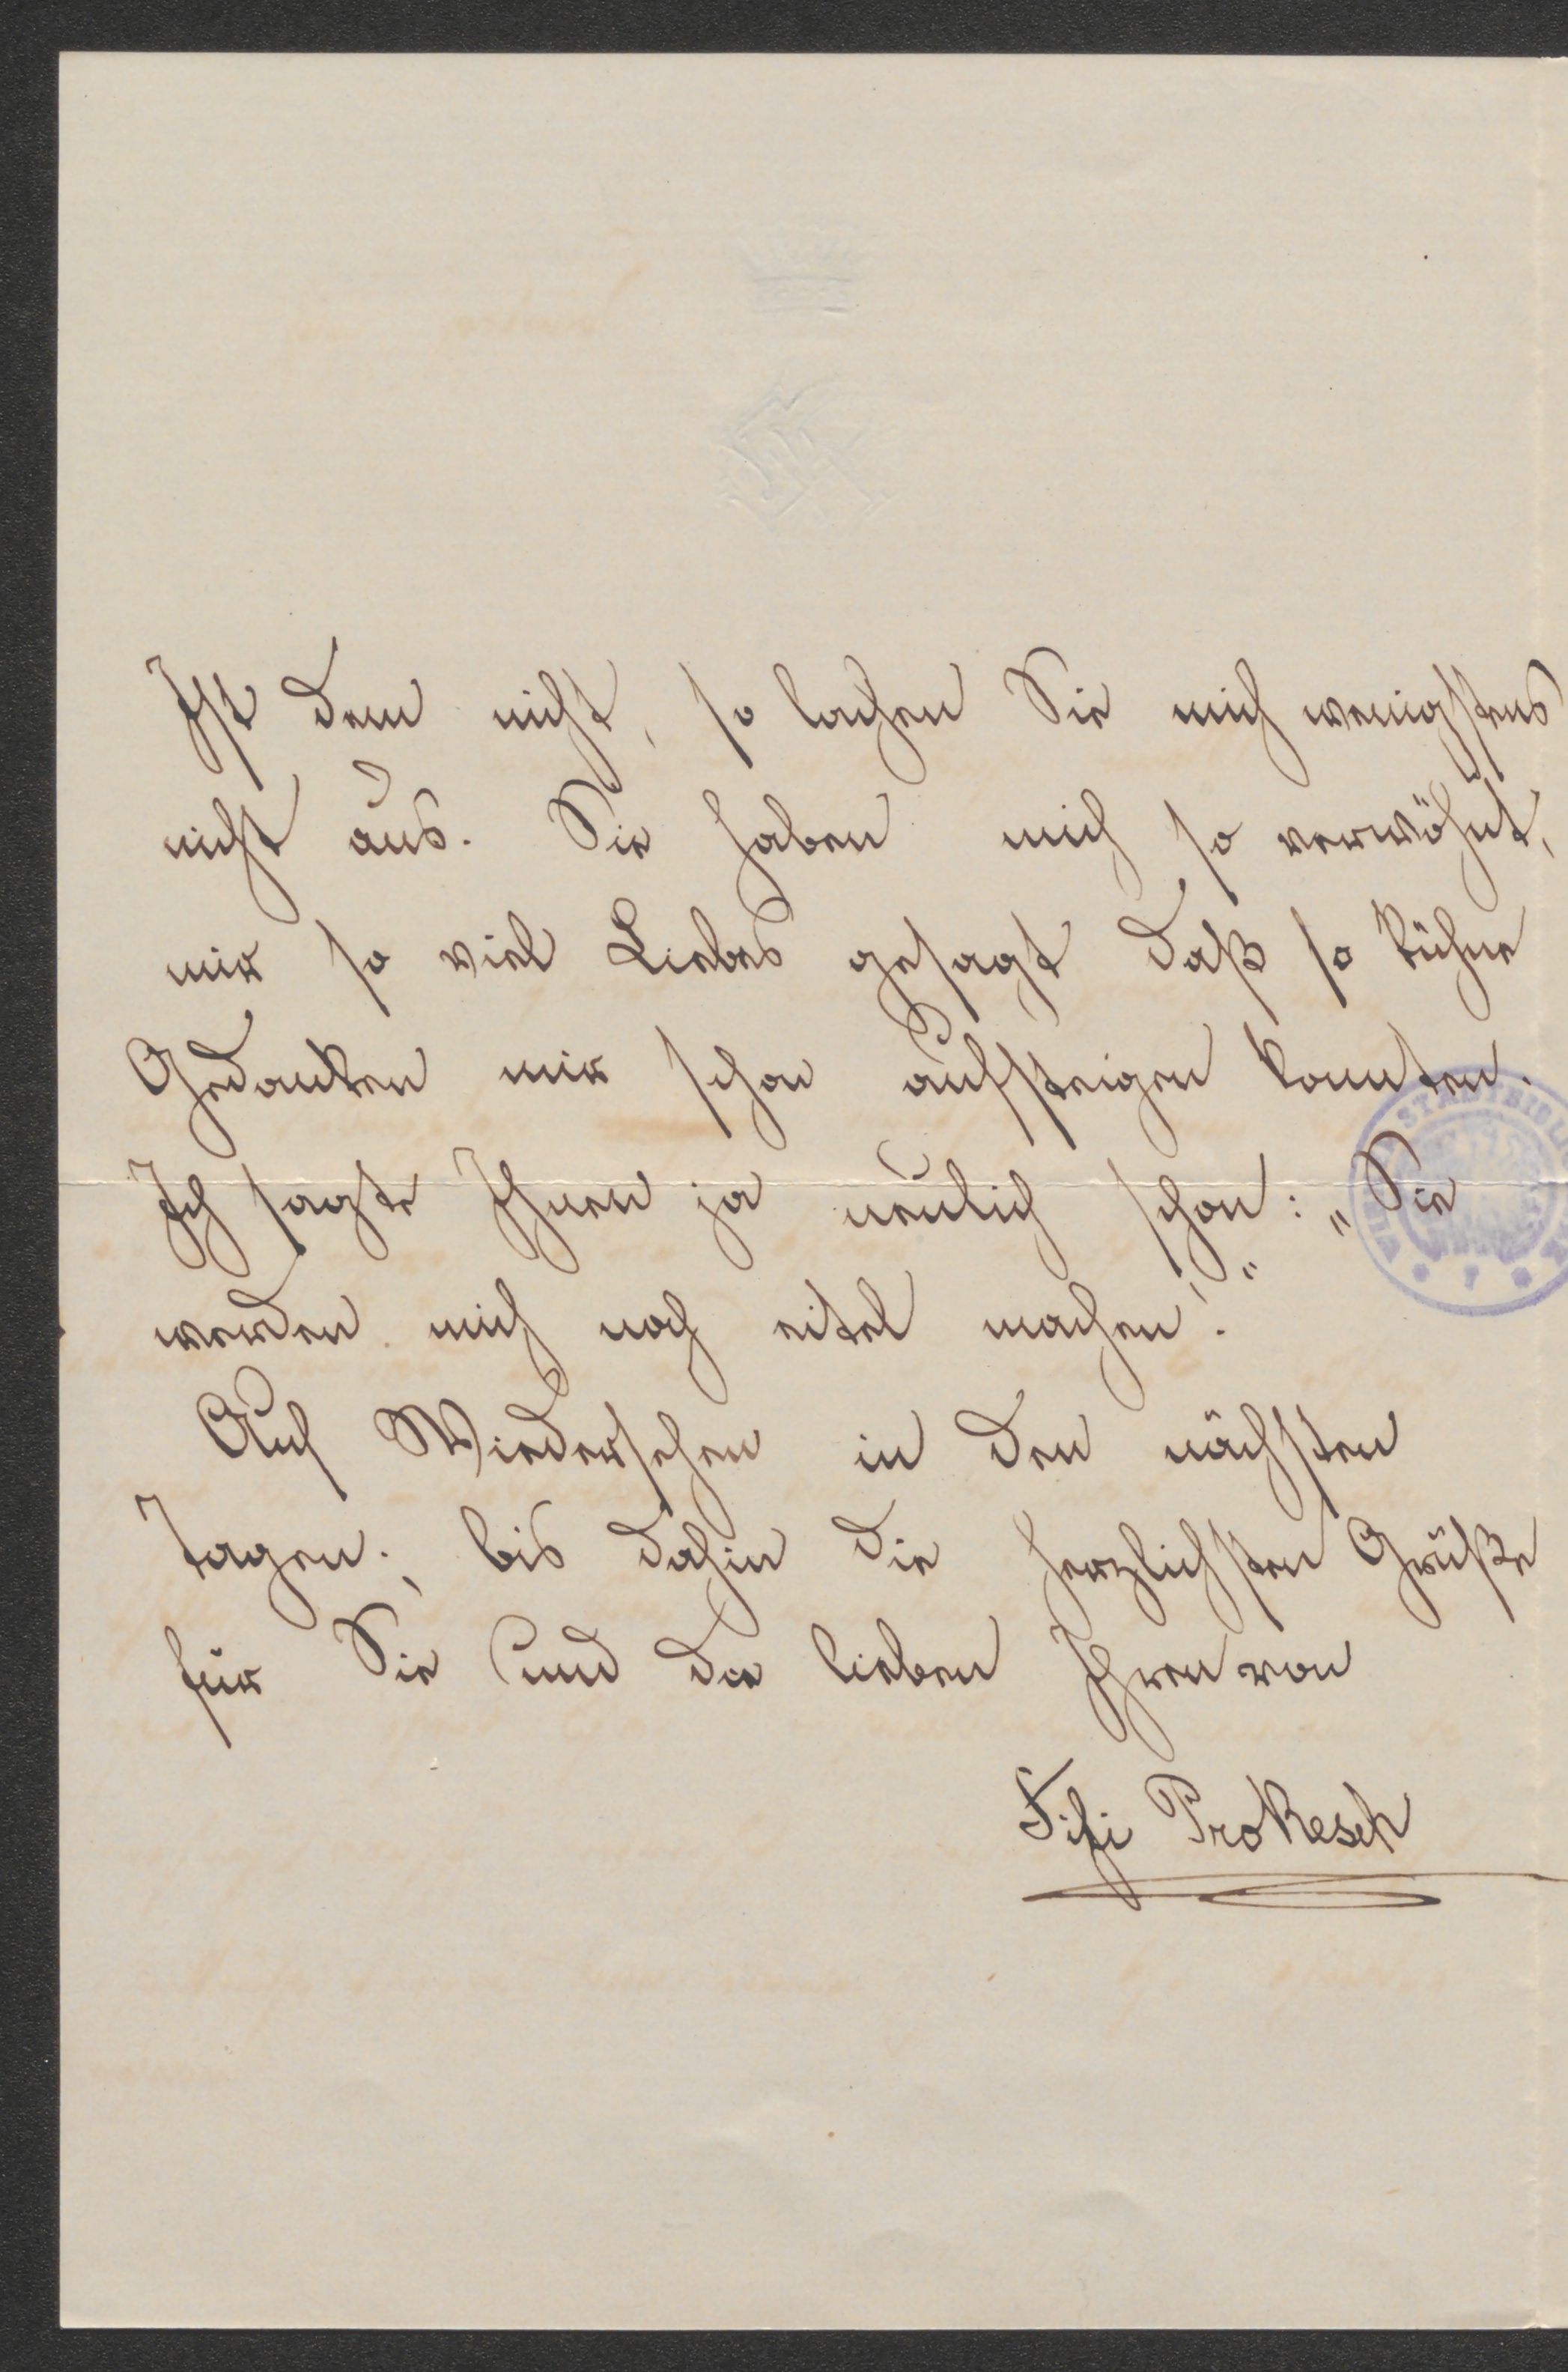 Ist dem nicht, so lachen Sie mich wenigstens
nicht aus. Sie haben mich so verwöhnt,
mir so viel Liebes gesagt daß so kühne
Gedanken mir schon aufsteigen konnten.
Ich sagte Ihnen ja neulich schon: „Sie
werden mich noch eitel machen!“
Auf Wiedersehen in den nächsten
Tagen; bis dahin die herzlichsten Grüße
für Sie und die lieben Ihren von
Fifi Prokesch